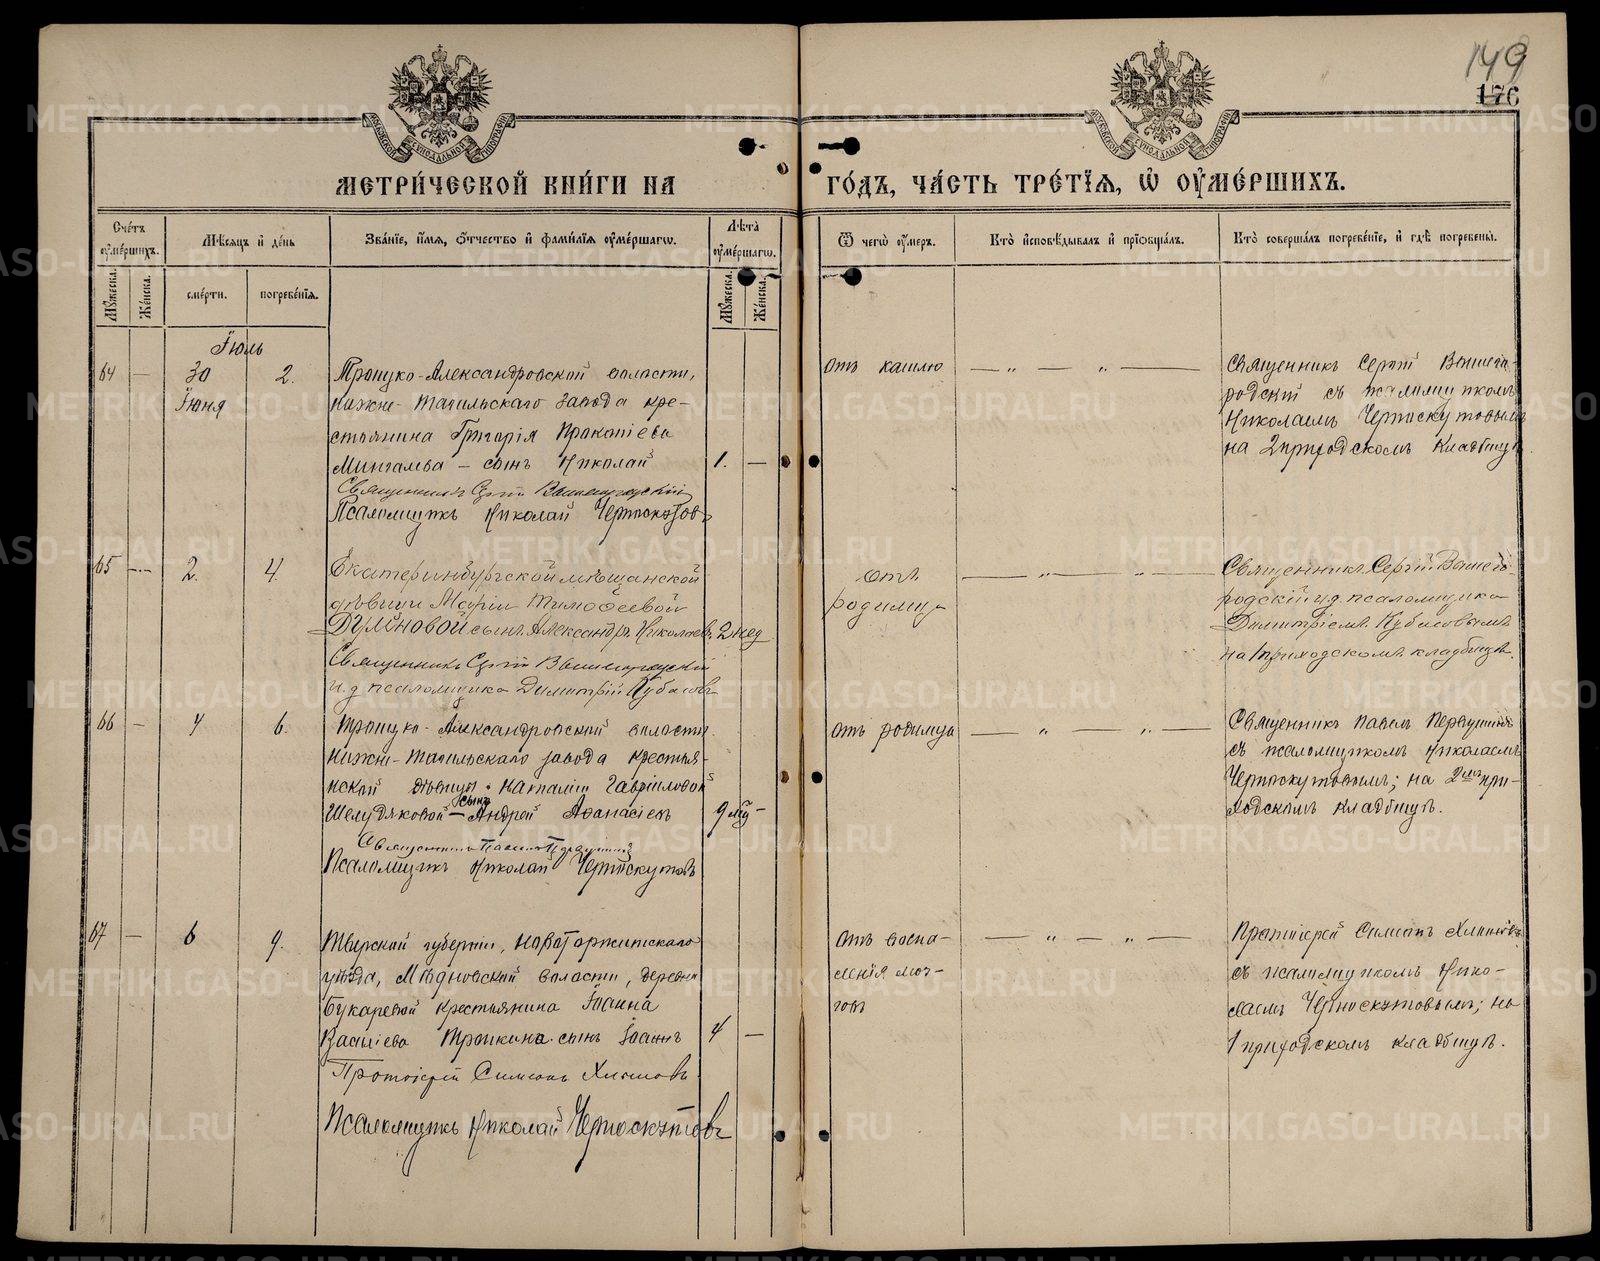 149
176
МЕТРИ́ЧЕСКОЙ КНИ́ГИ НА
ГО́ДЪ, ЧА́СТЬ ТРЕ́ТІѦ, Ѡ ОУМЕ́РШИХЪ.
Сче́тъ оуме́ршихъ.
Мѣсяцъ и де́нь
Зва́ніе, и́мя, о́тчество и фами́лія оуме́ршагѡ.
Лѣта̀ оуме́ршагѡ.
Ѿ чегѡ̀ оу́меръ.
Кто̀ исповѣ́дывалъ и пріѡбща́лъ.
Кто̀ соверша́лъ погребе́ніе, и гдѣ̀ погребены̀.
Мꙋ́жеска.
Же́нска.
сме́рти.
погребе́нія.
Мꙋ́жеска.
Же́нска.
Іюль
64 — 30 Іюня 2.
Троицко-Александровской волости,
Нижне-Тагильскаго завода кре-
стьянина Григорія Прокопіева
Мингалева – сынъ Николай 1. —
Священникъ Сергій Вышегородскій
Псаломщикъ Николай Черноскутовъ
отъ кашлю
— „ — „ —
Священникъ Сергій Вышего-
родский съ псаломщикомъ
Николаемъ Черноскутовымъ
на 2 приходскомъ кладбищѣ
65 — 2. 4.
Екатеринбургской мѣщанской
дѣвицы Маріи Тимофеевой
сынъ Александръ Николаевъ 2 нед
Священникъ Сергій Вышегородскій
и.д. псаломщика Димитрій Кубасовъ
отъ
родимца
— „ — „ —
Священникъ Сергій Вышего-
родскій и.д. псаломщика
Димитріемъ Кубасовымъ
на 1 приходскомъ кладбищѣ.
66 — 4 6.
Троицко-Александровской волости
Нижне-Тагильскаго завода крестья-
нской дѣвицы Наталіи Гавриловой
Шелудяковой – сынъ Андрей Афанасіевъ 9 мѣ –
Священникъ Павелъ Первушинъ
Псаломщикъ Николай Черноскутовъ
отъ родимца
— „ — „ —
Священникъ Павелъ Первушинъ
съ псаломщикомъ Николаемъ
Черноскутовымъ; на 2мъ при-
ходскомъ кладбищѣ.
67 — 6 9.
Тверской губерніи, Новоторжскаго
уѣзда, Мѣдновской волости, деревни
Букаревой крестьянина Іоанна
Васильева сынъ Іоаннъ 4 —
Протоіерей Симеонъ Хлыновъ.
Псаломщикъ Николай Черноскутовъ
отъ воспа-
ленія моз-
говъ
— „ — „ —
Протоіерей Симеонъ Хлыновъ
съ псаломщикомъ Нико-
лаемъ Черноскутовымъ; на
1 приходскомъ кладбищѣ.
METRIKI.GASO-URAL.RU